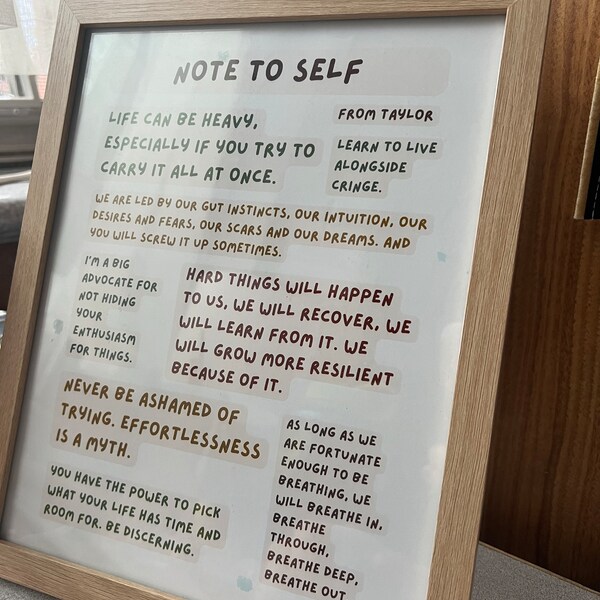 NOTE TO SELF
LIFE CAN BE HEAVY,
ESPECIALLY IF YOU TRY TO
CARRY IT ALL AT ONCE.
FROM TAYLOR
LEARN TO LIVE
ALONGSIDE
CRINGE.
WE ARE LED BY OUR GUT INSTINCTS, OUR INTUITION, OUR
DESIRES AND FEARS, OUR SCARS AND OUR DREAMS. AND
YOU WILL SCREW IT UP SOMETIMES.
I'M A BIG
ADVOCATE FOR
NOT HIDING
YOUR
ENTHUSIASM
FOR THINGS.
HARD THINGS WILL HAPPEN
TO US, WE WILL RECOVER, WE
WILL LEARN FROM IT. WE
WILL GROW MORE RESILIENT
BECAUSE OF IT.
NEVER BE ASHAMED OF
TRYING. EFFORTLESSNESS
IS A MYTH.
AS LONG AS WE
ARE FORTUNATE
ENOUGH TO BE
BREATHING, WE
WILL BREATHE IN,
BREATHE
THROUGH,
BREATHE DEEP,
BREATHE OUT
YOU HAVE THE POWER TO PICK
WHAT YOUR LIFE HAS TIME AND
ROOM FOR. BE DISCERNING.